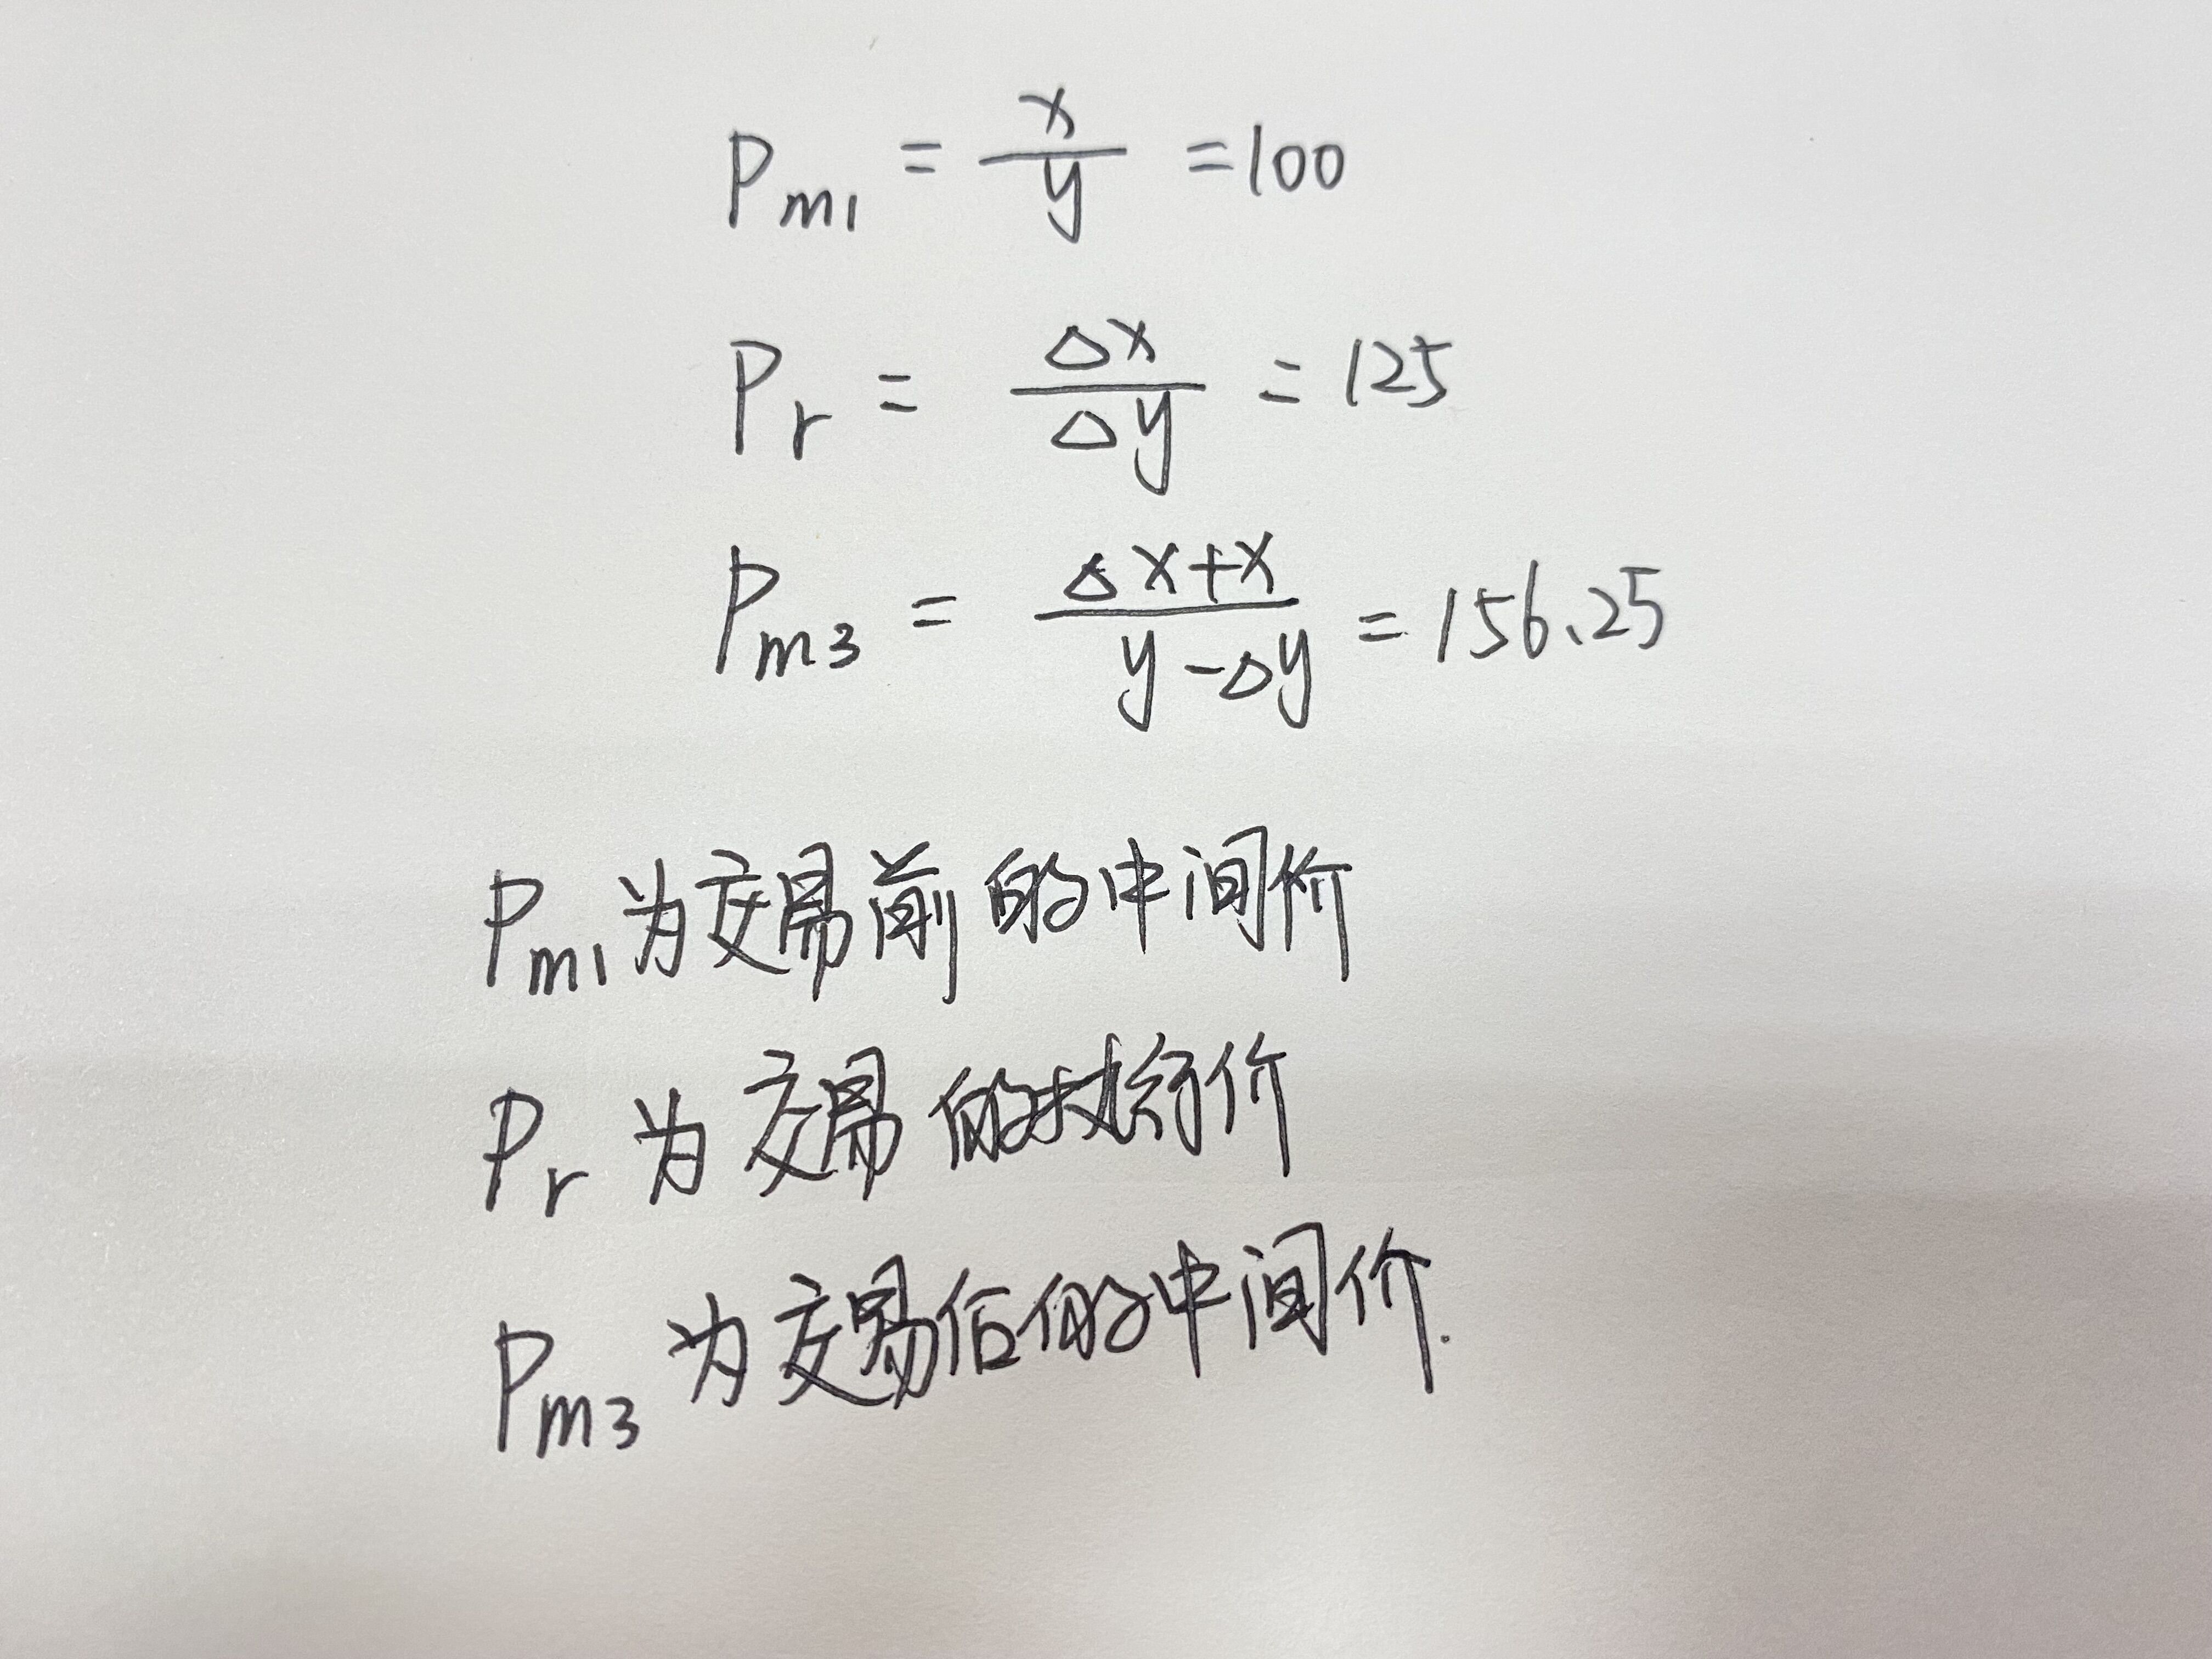 Pm1 = x/y = 100
Pr = Δx/Δy = 125
Pm3 = Δx+x/y-Δy = 156.25
Pm1为交易前的中间价
Pr 为交易的执行价
Pm3 为交易后的中间价.